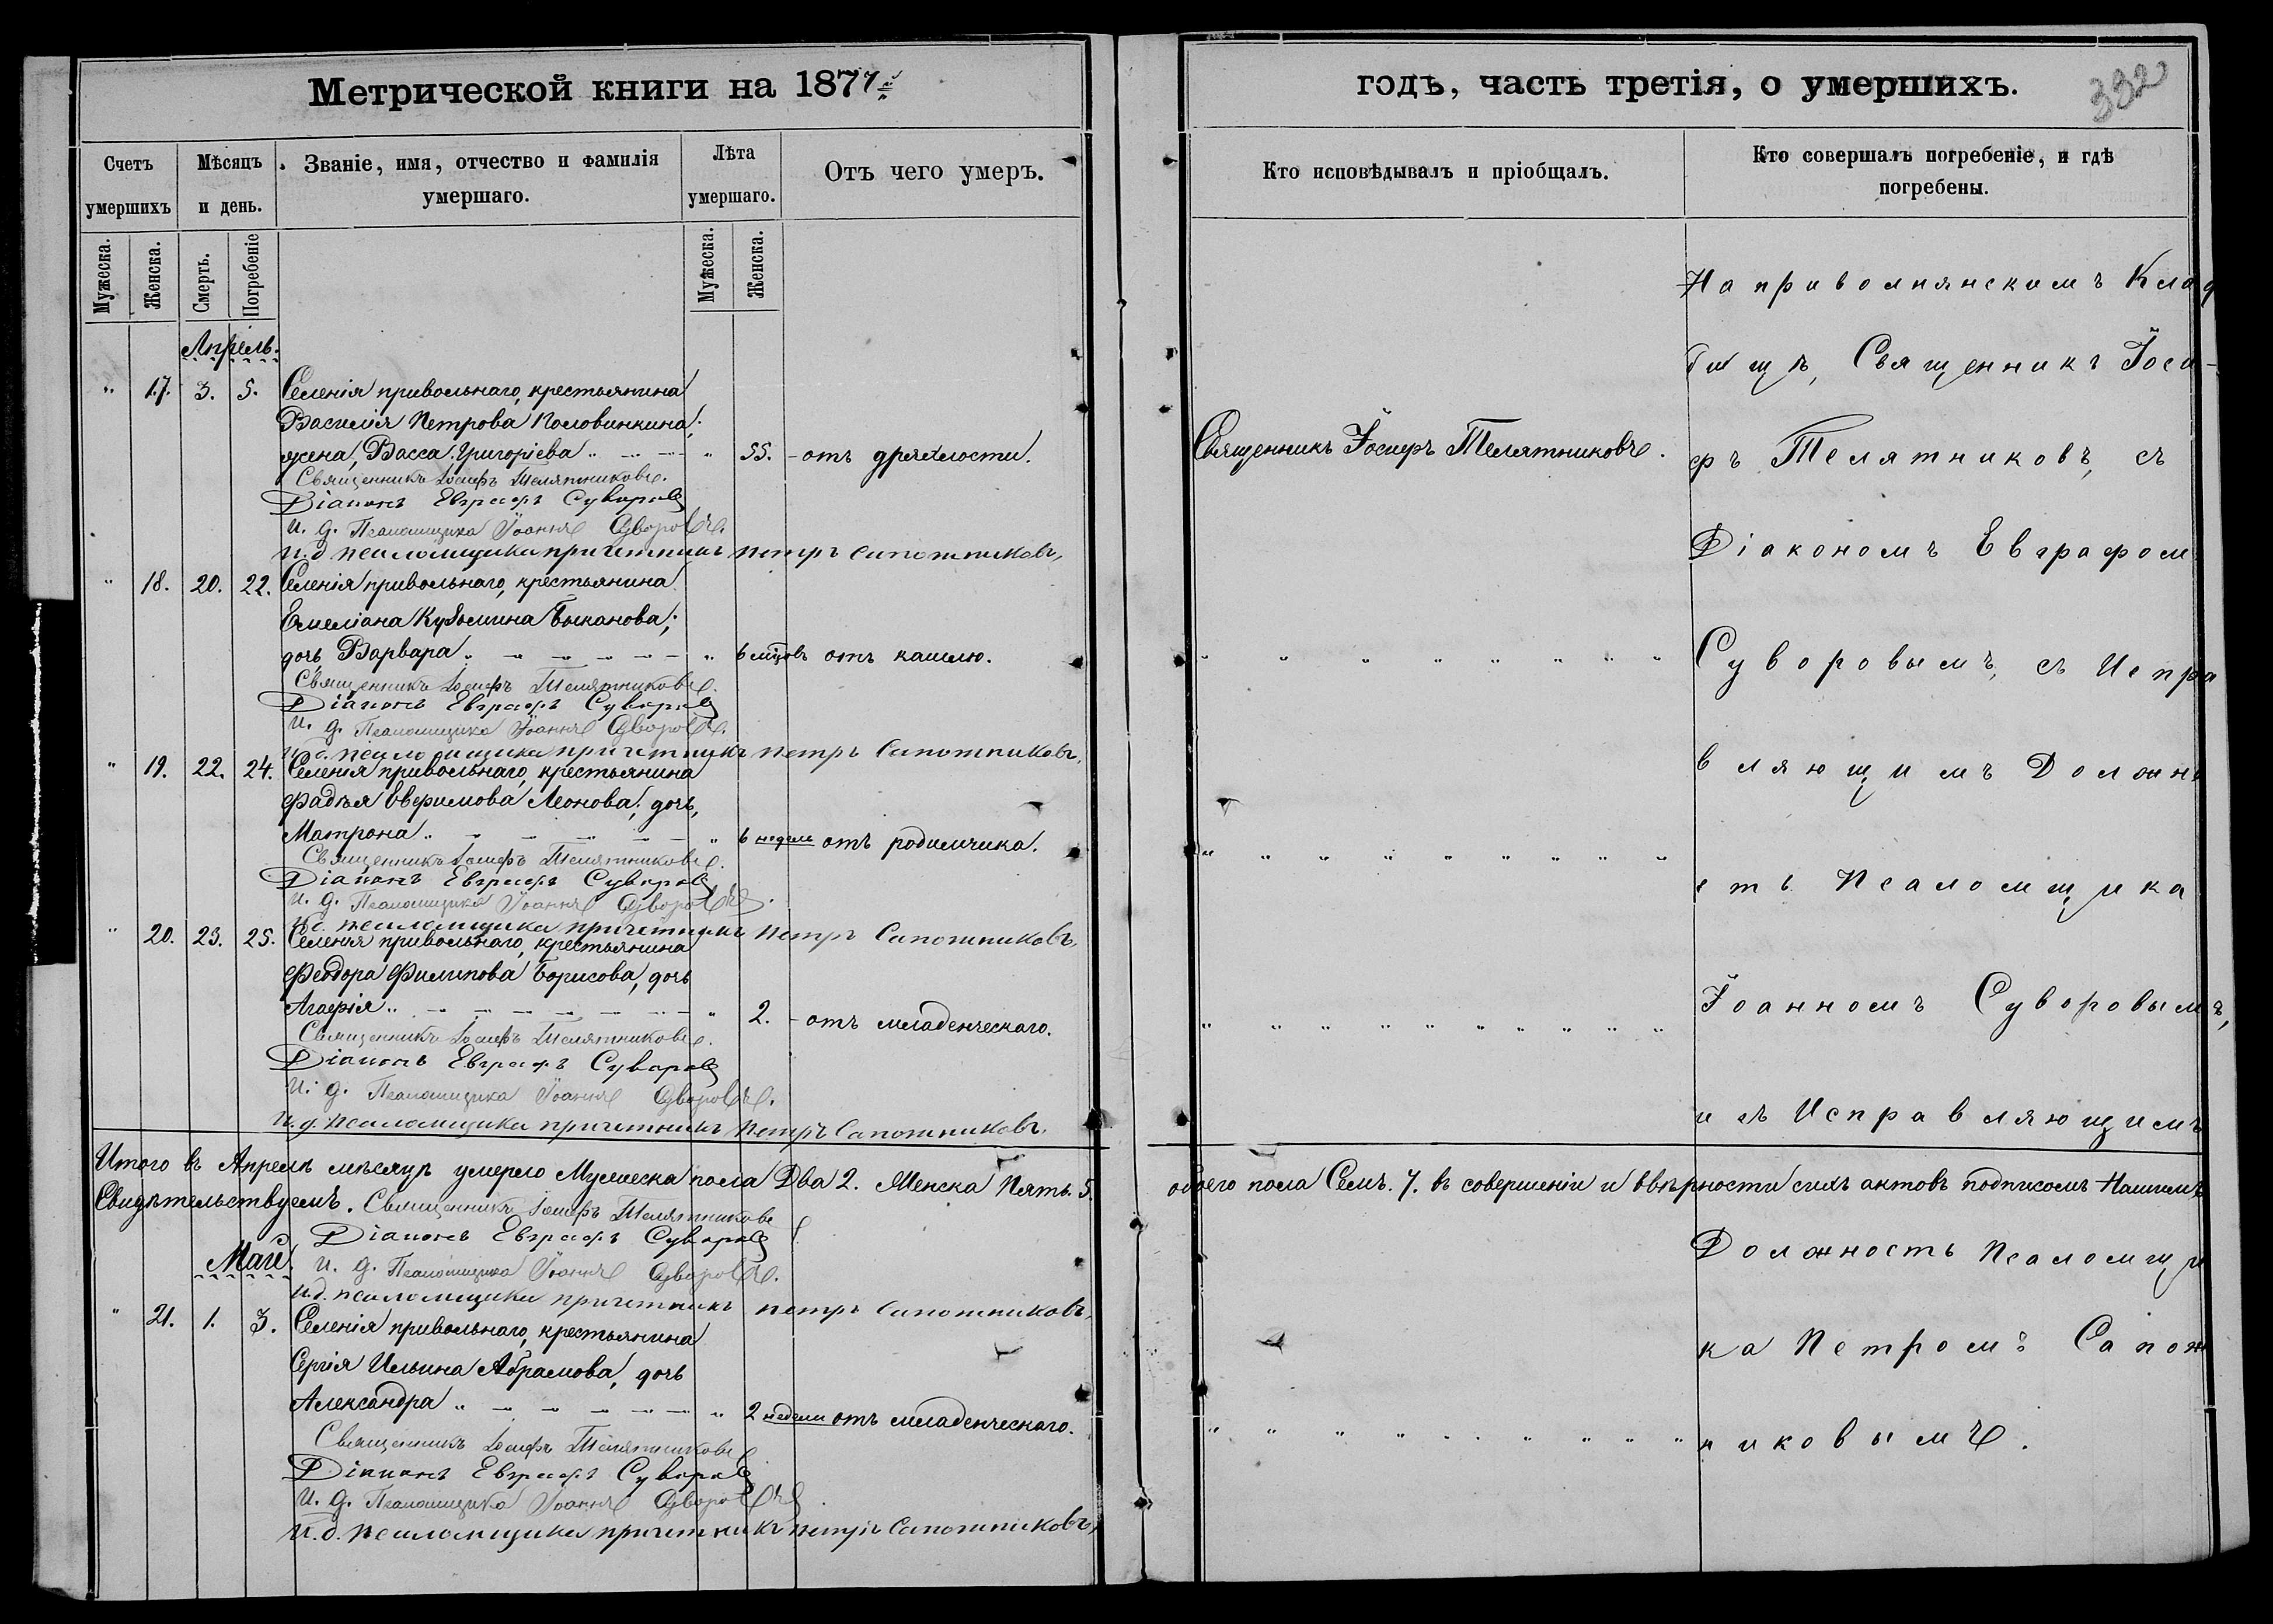 Метрической книги на 1877й
годъ, часть третія, о умершихъ.
332
Счетъ умершихъ
Мѣсяцъ и день.
Званіе, имя, отчество и фамилія умершаго.
Лѣта умершаго.
Отъ чего умеръ.
Кто исповѣдывалъ и пріобщалъ.
Кто совершалъ погребеніе, и гдѣ погребены.
Мужеска.
Женска.
Смерть.
Погребеніе
Мужеска.
Женска.
Апрель.
" 17. 3. 5. Селенія привольнаго, крестьянина
Василія Петрова Половинкина,
жена, Васса Григоріева " 55. - отъ дряхлости.
Священникъ Іосифъ Телятниковъ.
Священникъ Іосифъ Телятниковъ.
Діаконъ Евграфъ Суворовъ
И. д. Псаломщика Іоаннъ Суворовъ.
И.д. псаломщика причетникъ петръ Сапожниковъ,
" 18. 20. 22. Селенія привольнаго, крестьянина
Емеліана Кузьмина Быканова,
дочь Варвара " 6 мцовъ отъ кашлю.
Священникъ Іосифъ Телятниковъ.
Діаконъ Евграфъ Суворовъ
И. д. Псаломщика Іоаннъ Суворовъ.
И.д. псаломщика причетникъ петръ Сапожниковъ,
" 19. 22. 24. Селенія привольнаго, крестьянина
Фадѣя Евфимова Леонова, дочь,
Матрона " 6 недель отъ родимчика.
Священникъ Іосифъ Телятниковъ.
Діаконъ Евграфъ Суворовъ
И. д. Псаломщика Іоаннъ Суворовъ.
И.д. псаломщика причетникъ петръ Сапожниковъ,
" 20. 23. 25. Селенія привольнаго, крестьянина
Феодора Филипова Борисова, дочь
Агафія " 2. - отъ младенческаго.
Священникъ Іосифъ Телятниковъ.
Діаконъ Евграфъ Суворовъ
И. д. Псаломщика Іоаннъ Суворовъ.
И.д. псаломщика причетникъ петръ Сапожниковъ.
Итого въ Апрелѣ мѣсяцѣ умерло Мужеска пола Два 2. Женска Пять. 5. обоего пола Семь. 7. въ совершеніи и ввѣрности сихъ актовъ подписомъ Нашимъ
Свидѣтельствуемъ. Священникъ Іосифъ Телятниковъ
Діаконъ Евграфъ Суворовъ
Май. И. д. Псаломщика Іоаннъ Суворовъ.
И.д. псаломщика причетникъ петръ Сапожниковъ,
" 21. 1. 3. Селенія привольнаго, крестьянина
Сергія Ильина Абрамова, дочь
Александра " 2 недели отъ младенческаго.
Священникъ Іосифъ Телятниковъ
Діаконъ Евграфъ Суворовъ
И. д. Псаломщика Іоаннъ Суворовъ.
И.д. псаломщика причетникъ петръ Сапожниковъ,
На привольнянскимъ Клад
бищѣ, Священникъ Іоси-
фъ Телятниковъ, съ
Діакономъ Евграфом
Суворовымъ, съ Испра
вляющимъ Должно
сть Псаломщика
Іоанномъ Суворовымъ,
и съ Исправляющимъ
Должность Псаломщи
ка Петромъ Сапож
никовымъ.